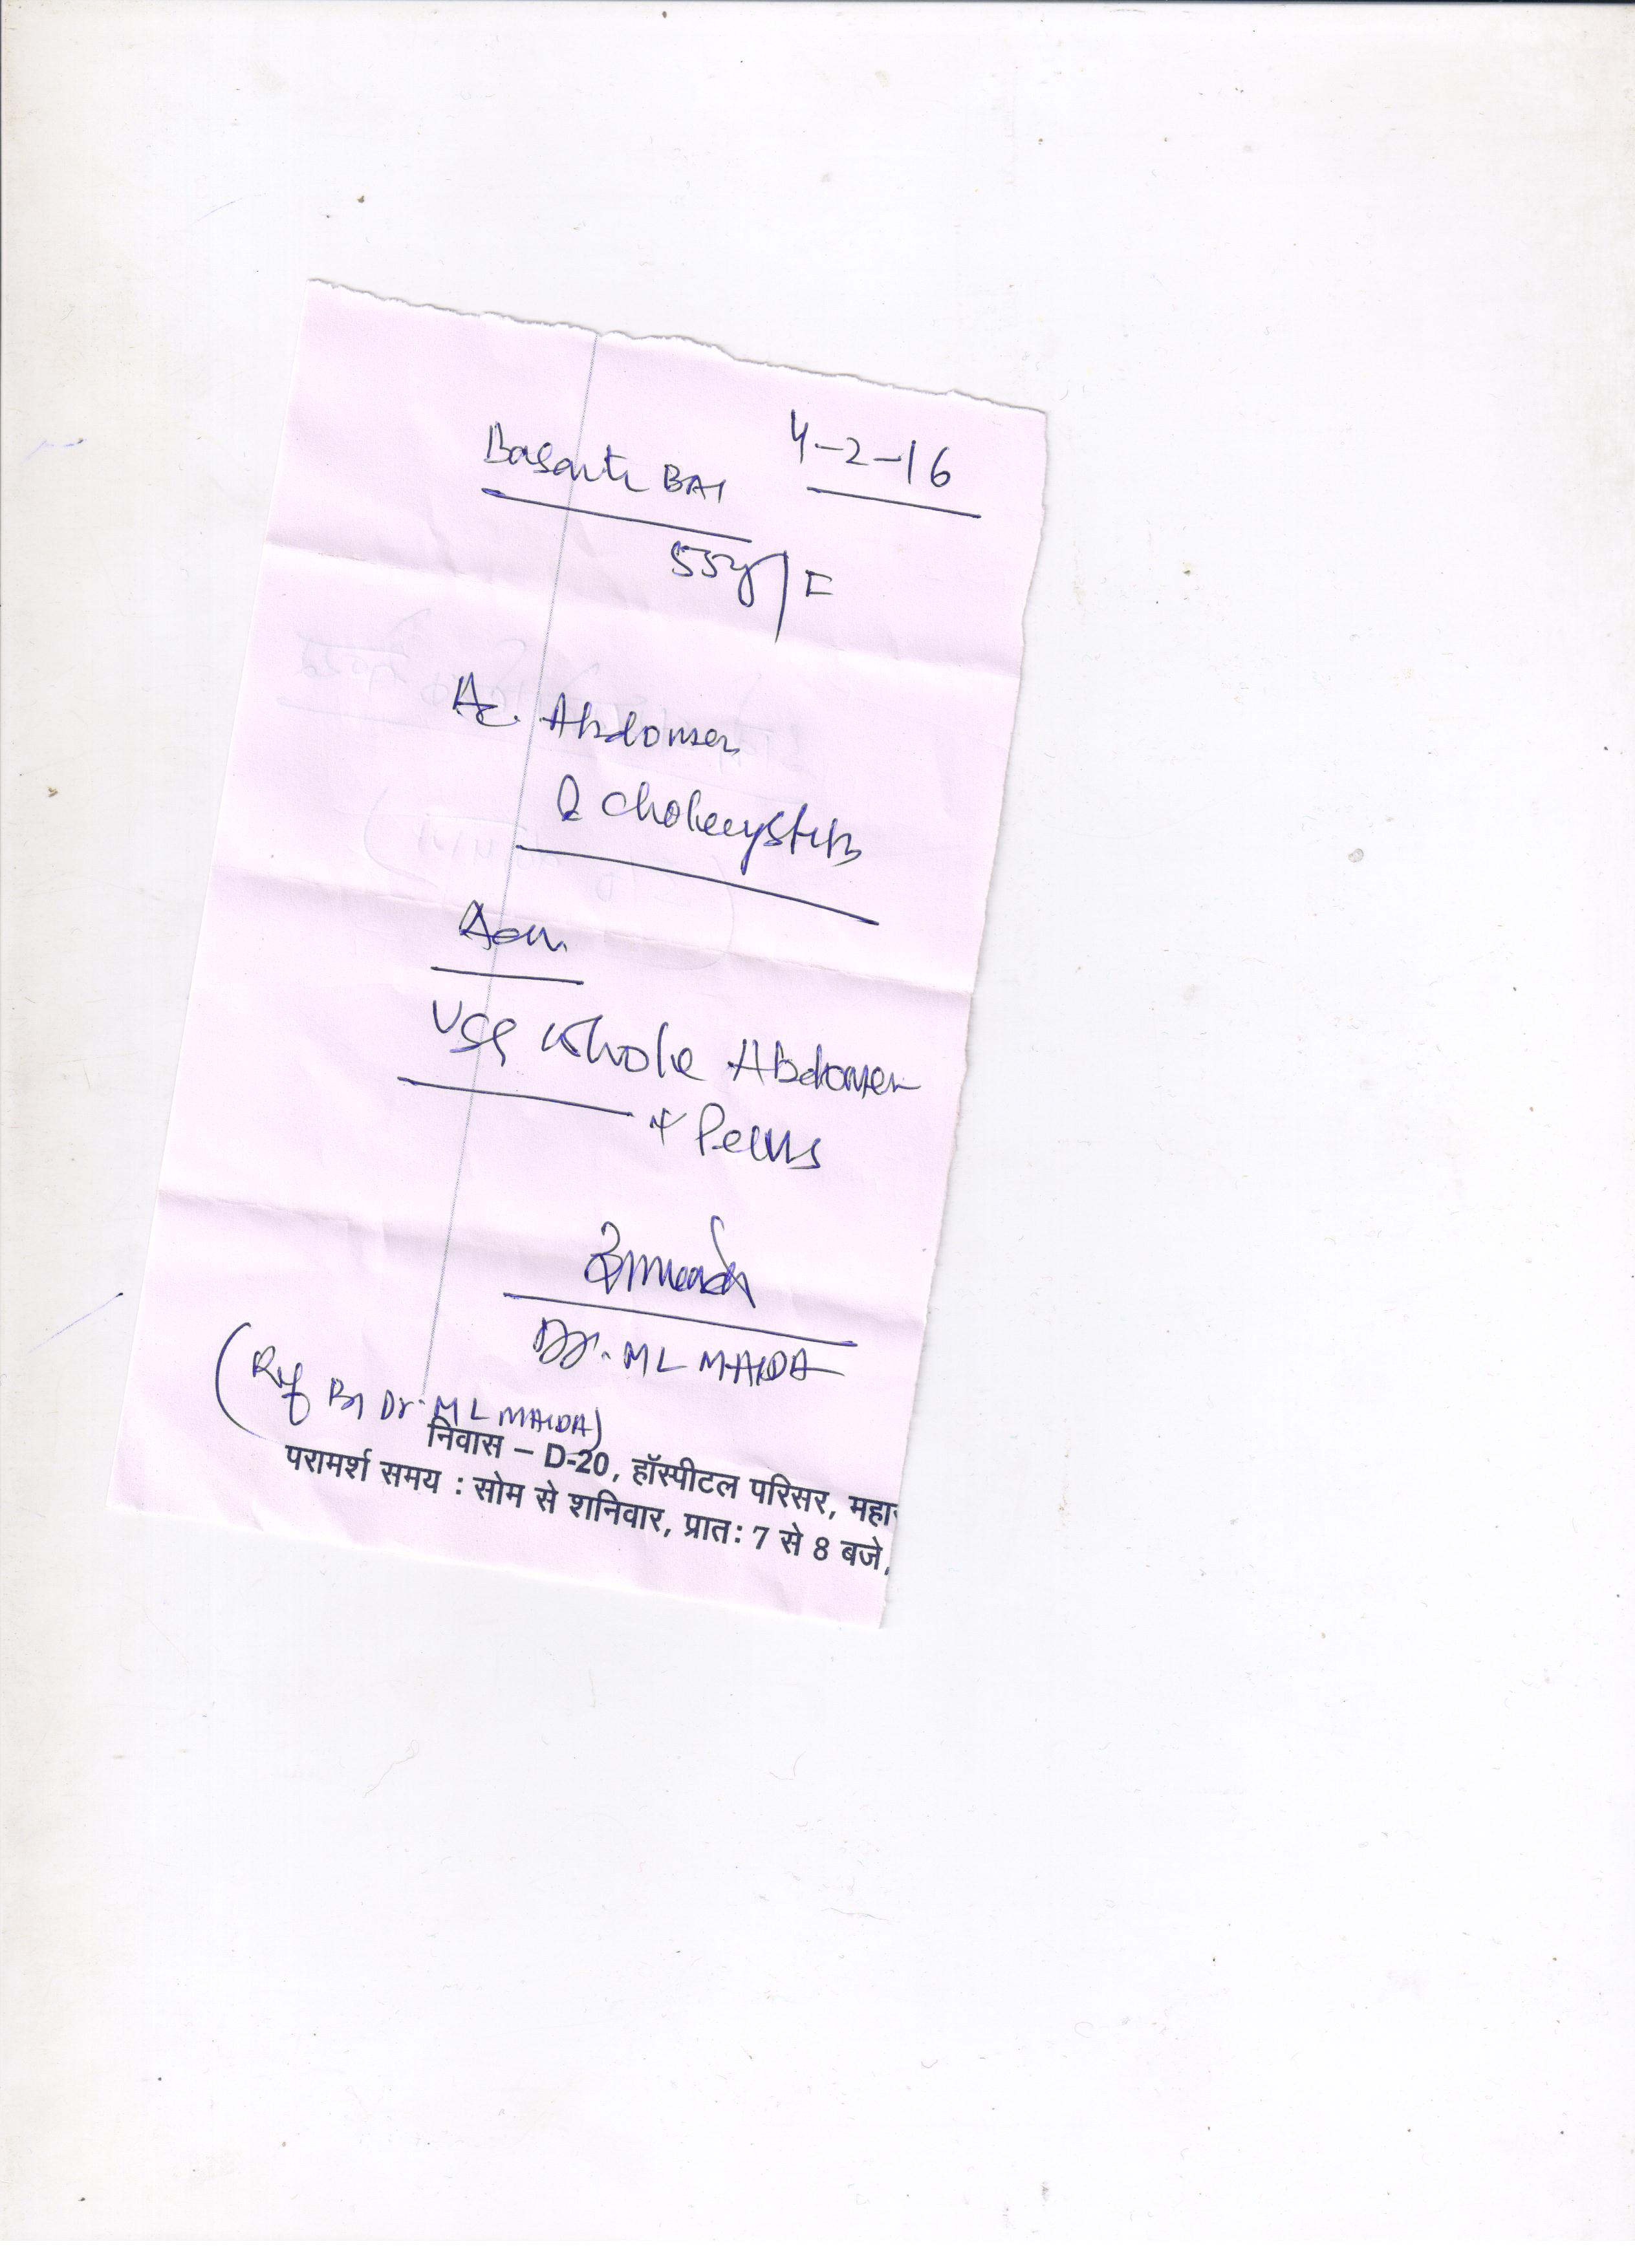 4-2-16
Basanti BAI
55y/F
Ac. Abdomen
Cholecystitis
Adv.
USG Whole Abdomen
+ Pelvis
Dr. ML MAIDA
(Ref By Dr. ML MAIDA)
निवास – D-20, हॉस्पीटल परिसर, महा
परामर्श समय : सोम से शनिवार, प्रात: 7 से 8 बजे,